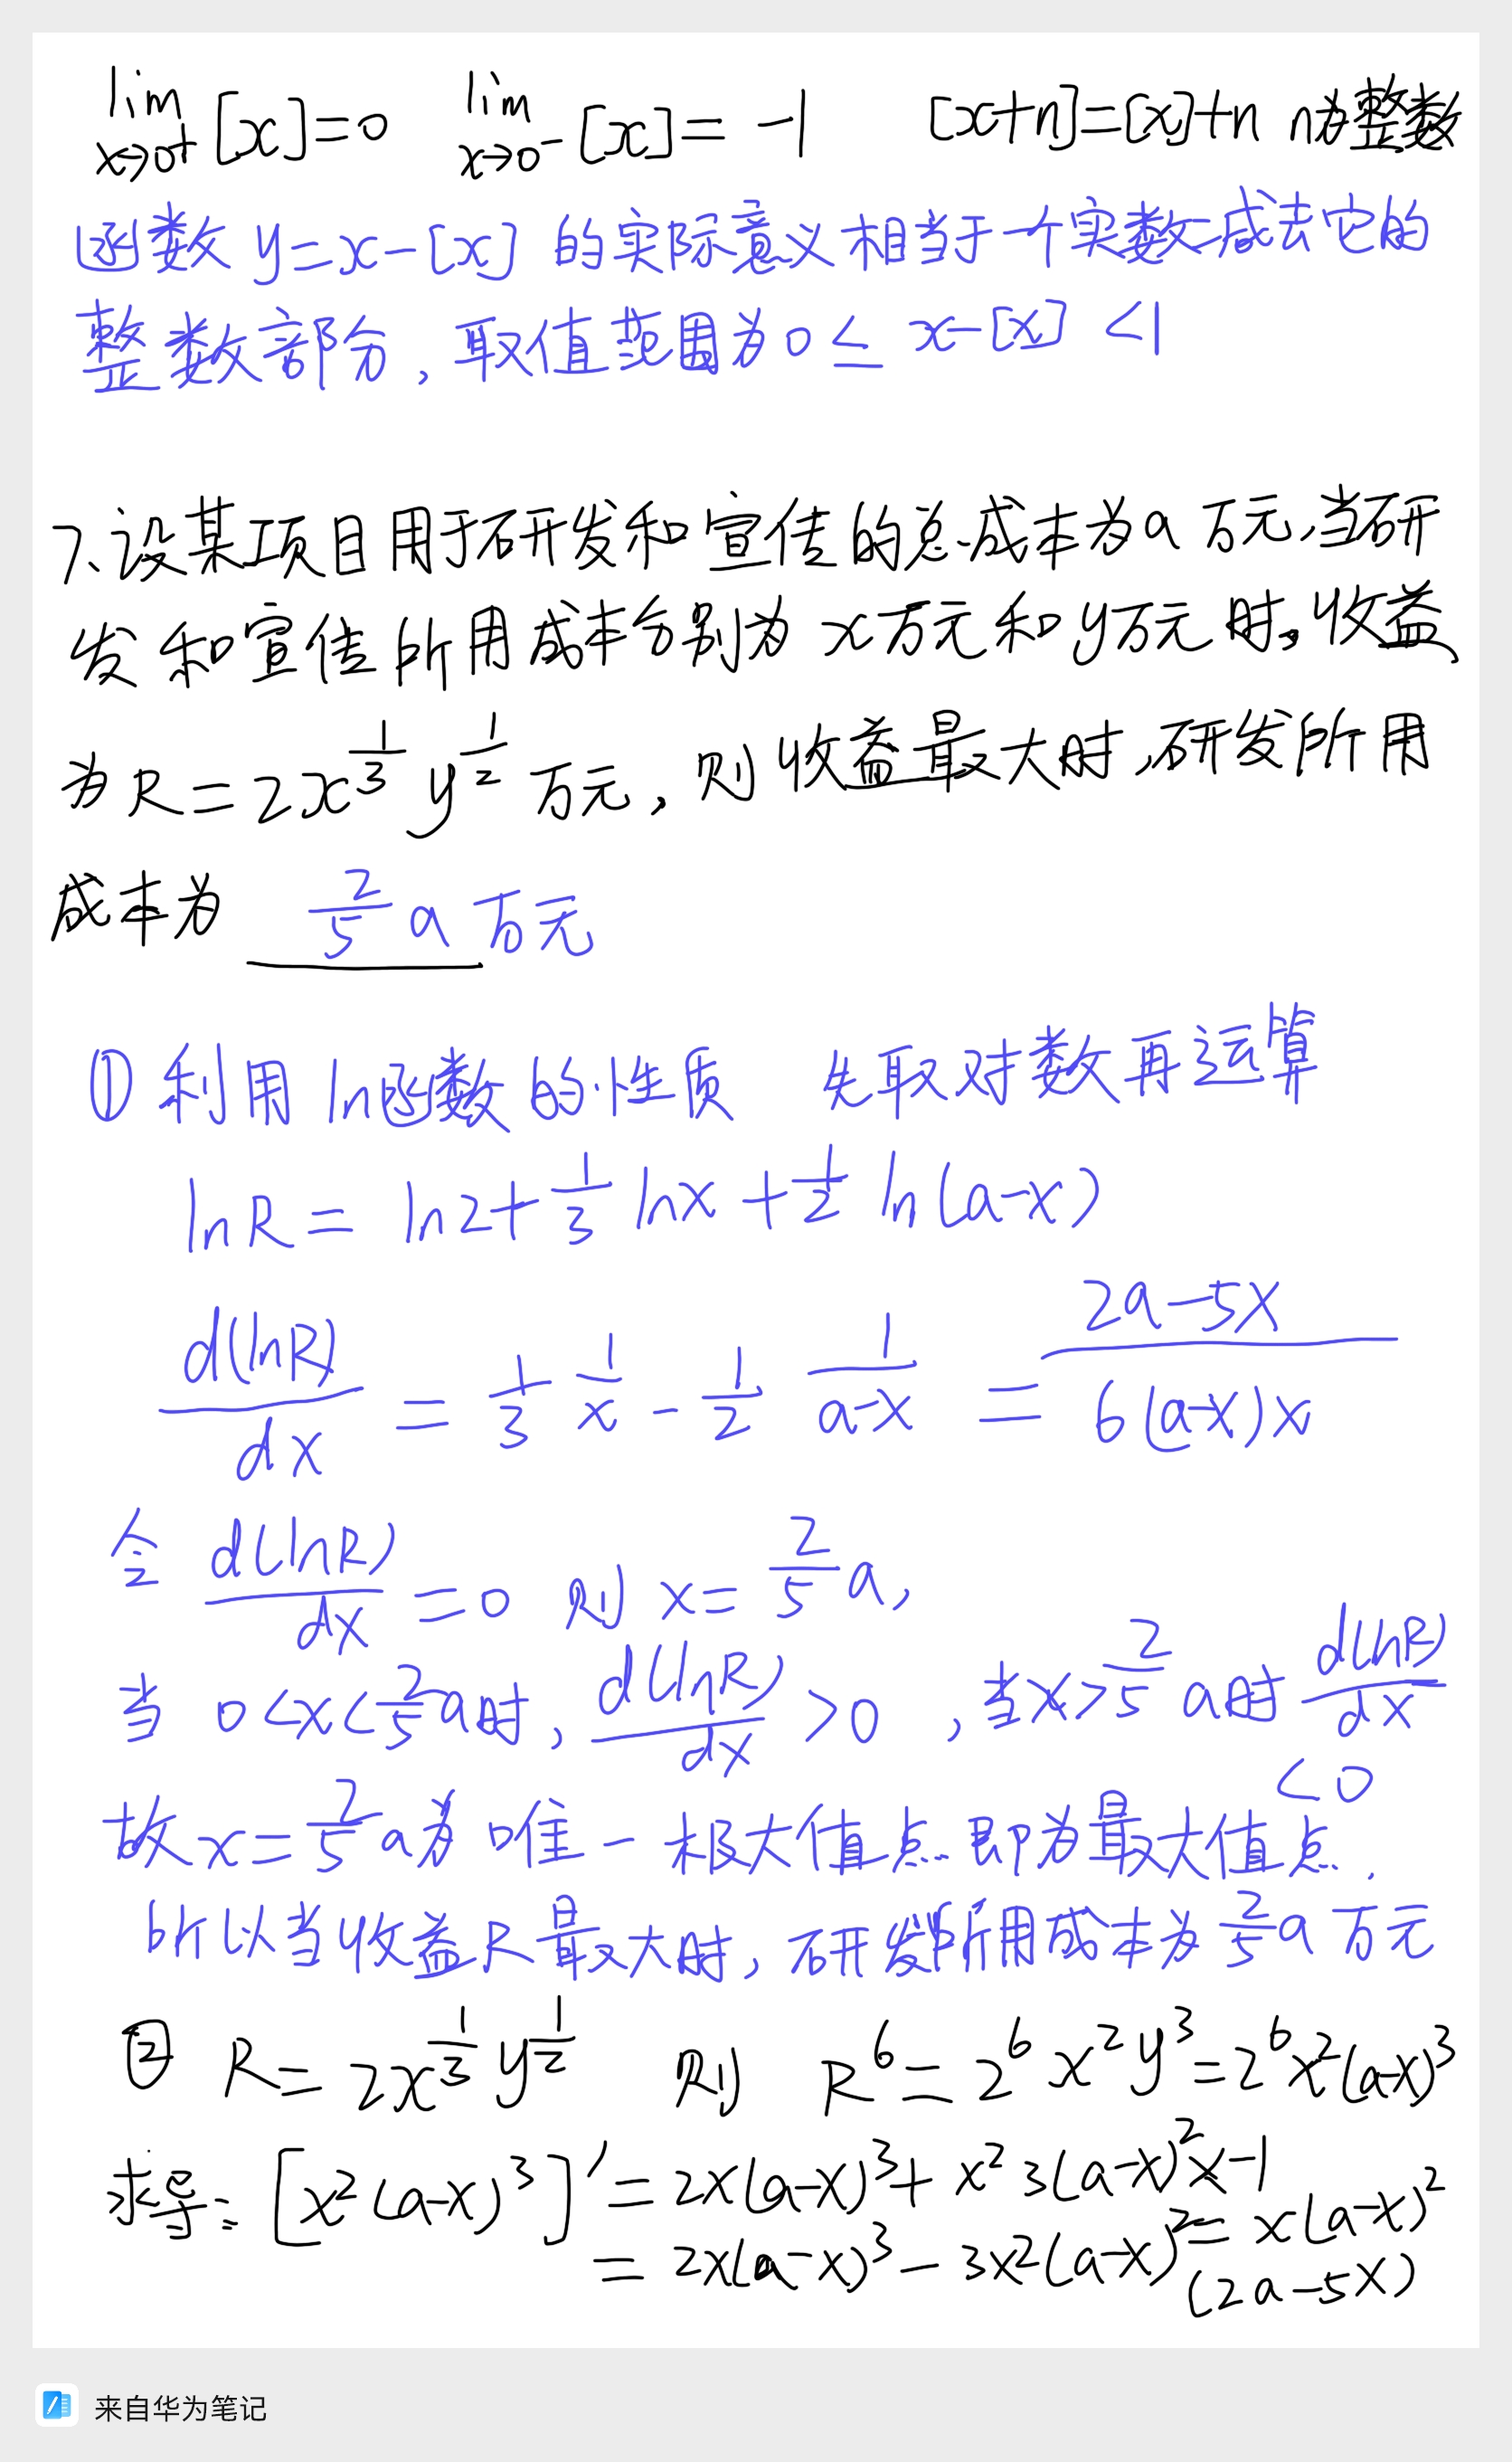 lim x→0⁺ [x]=0 lim x→0⁻ [x]=-1 [x+n]=[x]+n n为整数
函数 y=x-[x] 的实际意义相当于一个实数减去它的
整数部分,取值范围为 0≤ x-[x] <1
7、设某项目用于研发和宣传的总成本为a万元,当研
发和宣传所用成本分别为 x万元和y万元时,收益
为R=2x^(1/3) y^(1/2) 万元,则收益最大时,研发所用
成本为 2/5 a 万元
① 利用ln函数的性质 先取对数再运算
lnR= ln2+1/3 lnx+1/2 ln(a-x)
d(lnR)/dx = 1/3 1/x - 1/2 1/(a-x) = (2a-5x)/(6(a-x)x)
令 d(lnR)/dx =0 则 x= 2/5 a,
当 0<x<2/5 a时, d(lnR)/dx >0 ,当x>2/5 a时 d(lnR)/dx
<0
故x=2/5 a为唯一极大值点即为最大值点.
所以当收益R最大时,研发所用成本为2/5 a万元
② R=2x^(1/3) y^(1/2) 则 R⁶=2⁶x²y³=2⁶x²(a-x)³
求导: [x²(a-x)³]′=2x(a-x)³+x²3(a-x)²×-1
=2x(a-x)³-3x²(a-x)²=x(a-x)²
(2a-5x)
来自华为笔记